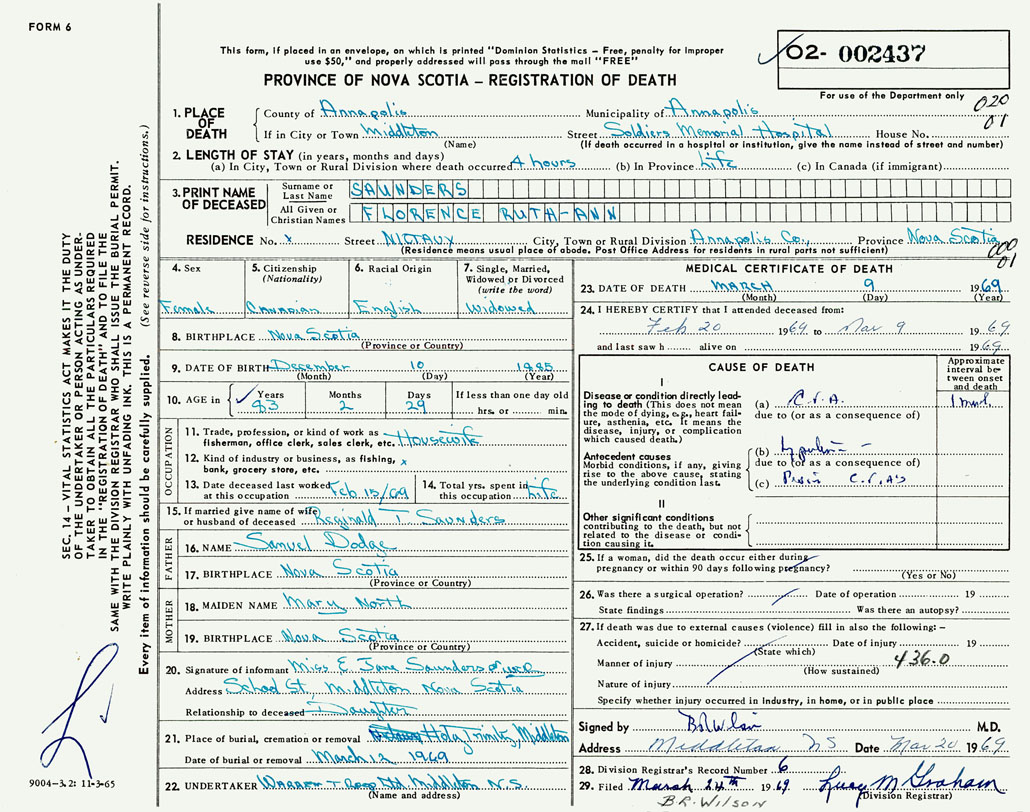 FORM 6
This form, if placed in an envelope, on which is printed "Dominion Statistics – Free, penalty for improper
use $50," and properly addressed will pass through the mail "FREE"
PROVINCE OF NOVA SCOTIA – REGISTRATION OF DEATH
02- 002437
For use of the Department only
020
01
1. PLACE OF DEATH
County of Annapolis Municipality of Annapolis
If in City or Town Middleton Street Soldiers Memorial Hospital House No.
(Name) (If death occurred in a hospital or institution, give the name instead of street and number)
2. LENGTH OF STAY (in years, months and days)
(a) In City, Town or Rural Division where death occurred 4 hours (b) In Province Life (c) In Canada (if immigrant)
3. PRINT NAME OF DECEASED
Surname or Last Name SAUNDERS
All Given or Christian Names FLORENCE RUTH-ANN
RESIDENCE No. x Street NICTAUX City, Town or Rural Division Annapolis Co., Province Nova Scotia
(Residence means usual place of abode. Post Office Address for residents in rural ports not sufficient)
000
01
4. Sex
Female
5. Citizenship
(Nationality)
Canadian
6. Racial Origin
English
7. Single, Married,
Widowed or Divorced
(write the word)
Widowed
8. BIRTHPLACE Nova Scotia
(Province or Country)
9. DATE OF BIRTH December 10 1885
(Month) (Day) (Year)
10. AGE in Years Months Days If less than one day old
83 2 29 hrs. or min.
OCCUPATION
11. Trade, profession, or kind of work as Housewife
fisherman, office clerk, sales clerk, etc.
12. Kind of industry or business, as fishing, x
bank, grocery store, etc.
13. Date deceased last worked at this occupation Feb 15/69
14. Total yrs. spent in this occupation Life
15. If married give name of wife
or husband of deceased Reginald T Saunders
FATHER
16. NAME Samuel Dodge
17. BIRTHPLACE Nova Scotia
(Province or Country)
MOTHER
18. MAIDEN NAME Mary North
19. BIRTHPLACE Nova Scotia
(Province or Country)
20. Signature of informant Miss E Jane Saunders
Address School St., Middleton Nova Scotia
Relationship to deceased Daughter
21. Place of burial, cremation or removal Holy Trinity, Middleton
Date of burial or removal March 12 1969
22. UNDERTAKER Warren T Roop Ltd Middleton N.S.
(Name and address)
MEDICAL CERTIFICATE OF DEATH
23. DATE OF DEATH MARCH 9 1969
(Month) (Day) (Year)
24. I HEREBY CERTIFY that I attended deceased from:
Feb 20 1969 to Mar 9 1969
and last saw h alive on 1969
CAUSE OF DEATH
Approximate interval between onset and death
I
Disease or condition directly leading to death (This does not mean the mode of dying, e.g., heart failure, asthenia, etc. It means the disease, injury, or complication which caused death.)
(a) C.V.A.
due to (or as a consequence of)
Antecedent causes
Morbid conditions, if any, giving rise to the above cause, stating the underlying condition last.
(b)
due to (or as a consequence of)
(c) C.V.A's
II
Other significant conditions
contributing to the death, but not related to the disease or condition causing it.
25. If a woman, did the death occur either during
pregnancy or within 90 days following pregnancy?
(Yes or No)
26. Was there a surgical operation? Date of operation 19
State findings Was there an autopsy?
27. If death was due to external causes (violence) fill in also the following: –
Accident, suicide or homicide? Date of injury 19
(State which)
Manner of injury 436.0
(How sustained)
Nature of injury
Specify whether injury occurred in industry, in home, or in public place
Signed by B R Wilson M.D.
Address Middleton NS Date Mar 20 1969
28. Division Registrar's Record Number 6
29. Filed March 24th 1969 Lucy M Graham
(Division Registrar)
B.R. WILSON
SEC. 14 – VITAL STATISTICS ACT MAKES IT THE DUTY
OF THE UNDERTAKER OR PERSON ACTING AS UNDERTAKER
TO OBTAIN ALL THE PARTICULARS REQUIRED
IN THE "REGISTRATION OF DEATH" AND TO FILE THE
SAME WITH THE DIVISION REGISTRAR WHO SHALL ISSUE THE BURIAL PERMIT.
WRITE PLAINLY WITH UNFADING INK. THIS IS A PERMANENT RECORD.
Every item of information should be carefully supplied. (See reverse side for instructions.)
9004-3.2: 11-3-65